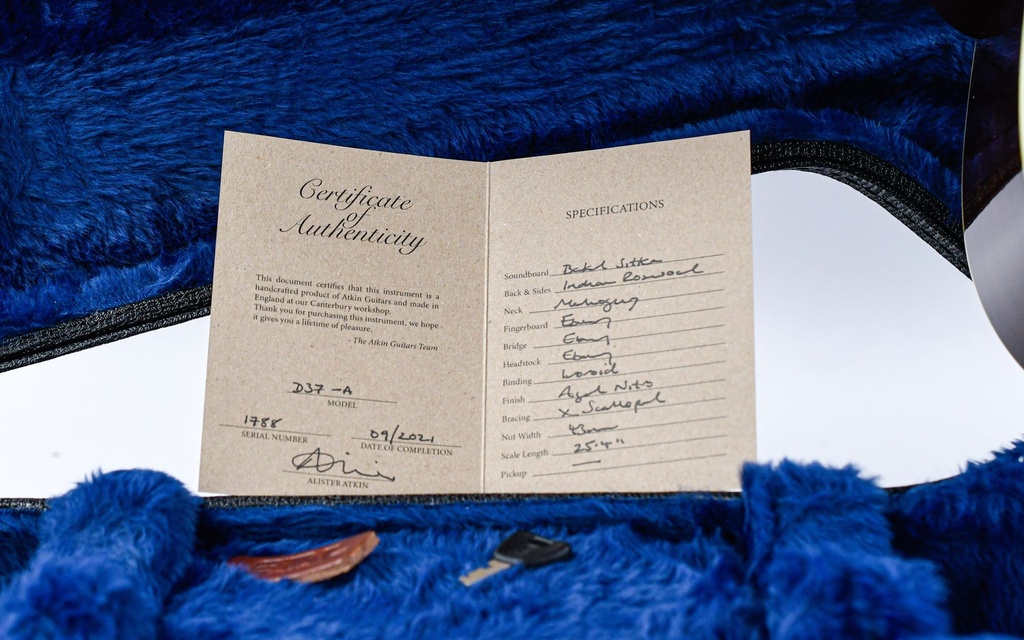 Certificate
of
Authenticity
This document certifies that this instrument is a
handcrafted product of Atkin Guitars and made in
England at our Canterbury workshop.
Thank you for purchasing this instrument, we hope
it gives you a lifetime of pleasure.
- The Atkin Guitars Team
D37 -A
MODEL
1788
SERIAL NUMBER
09/2021
DATE OF COMPLETION
ALISTER ATKIN
SPECIFICATIONS
Soundboard Baked Sitka
Back & Sides Indian Rosewood
Neck Mahogany
Fingerboard Ebony
Bridge Ebony
Headstock Ebony
Binding Ivoroid
Finish Aged Nitro
Bracing X Scalloped
Nut Width 43mm
Scale Length 25.4"
Pickup —